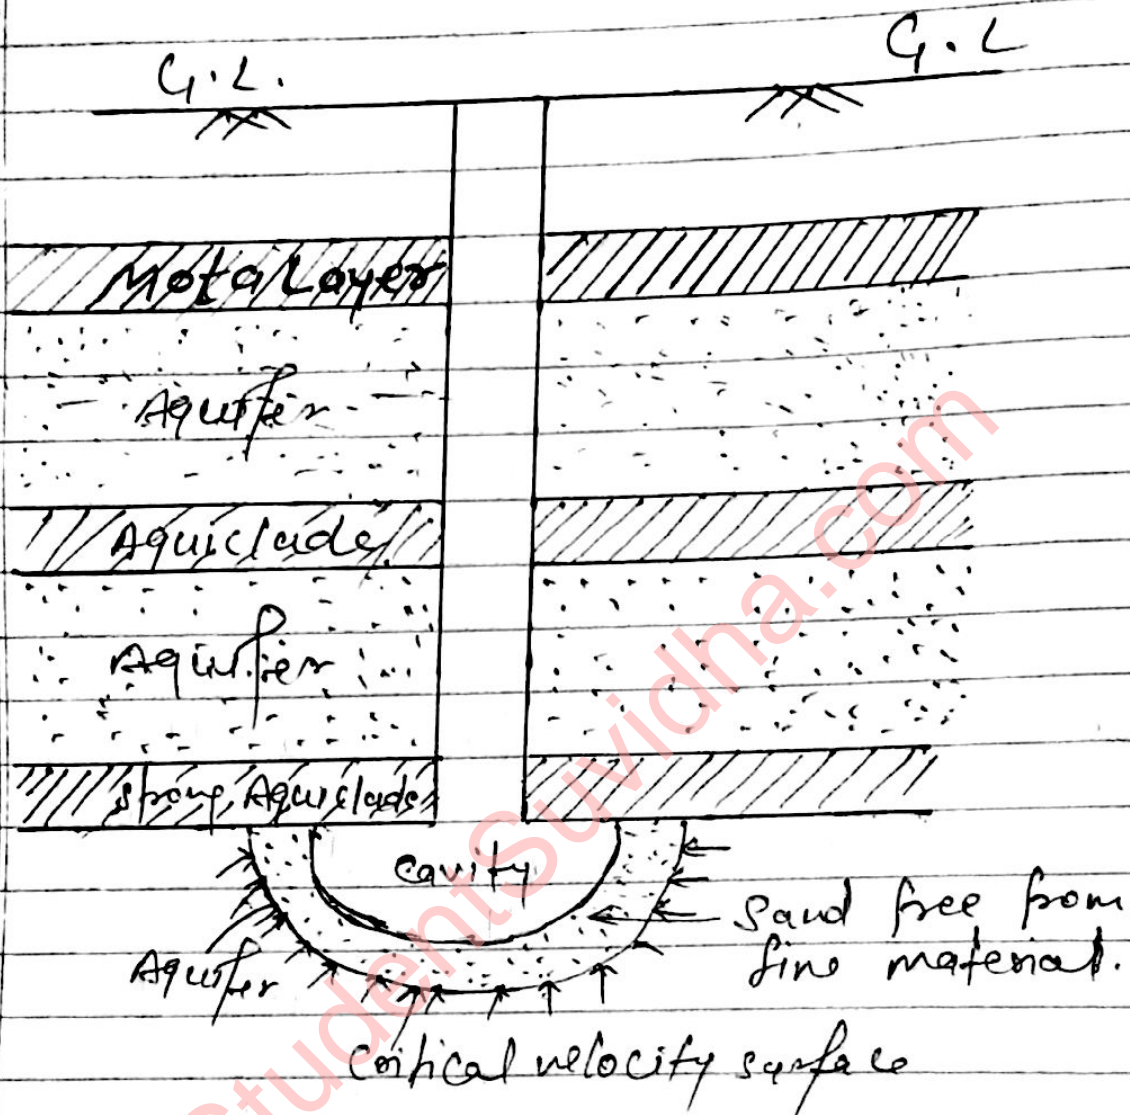 G.L.
G.L
Mota Layer
Aquifer
Aquiclade
Aquifier
Strong Aquiclade
cavity
Sand free from
fine material.
Aquifer
Critical velocity surface
StudentSuvidha.com